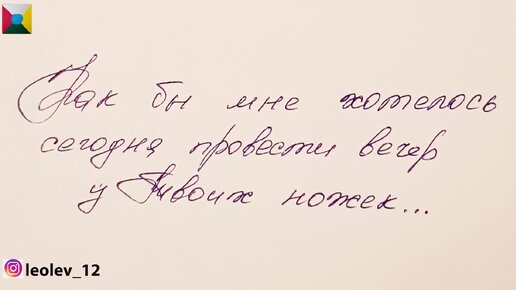 Так бы мне хотелось
сегодня провести вечер
у Твоих ножек...
leolev_12